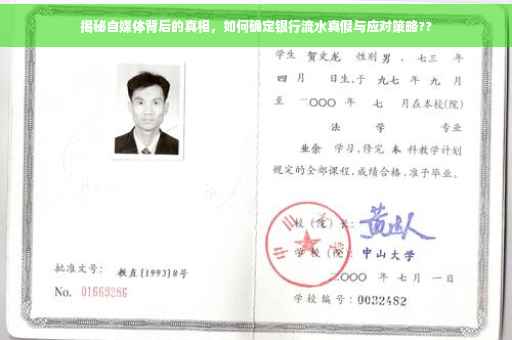 揭秘自媒体背后的真相，如何确定银行流水真假与应对策略??
学生 贺文龙 性别 男 ，七三 年
四 月 日生,于 九七 年 九 月
至 二〇〇〇 年 七 月在本校(院)
法 学 专业
业余 学习,修完 本 科教学计划
规定的全部课程,成绩合格,准予毕业。
校 (院) 长:
学 校 (院): 中山大学
批准文号: 教直[1993]8号
二〇〇〇 年 七 月 一 日
No. 01669286
学校编号: 0032482